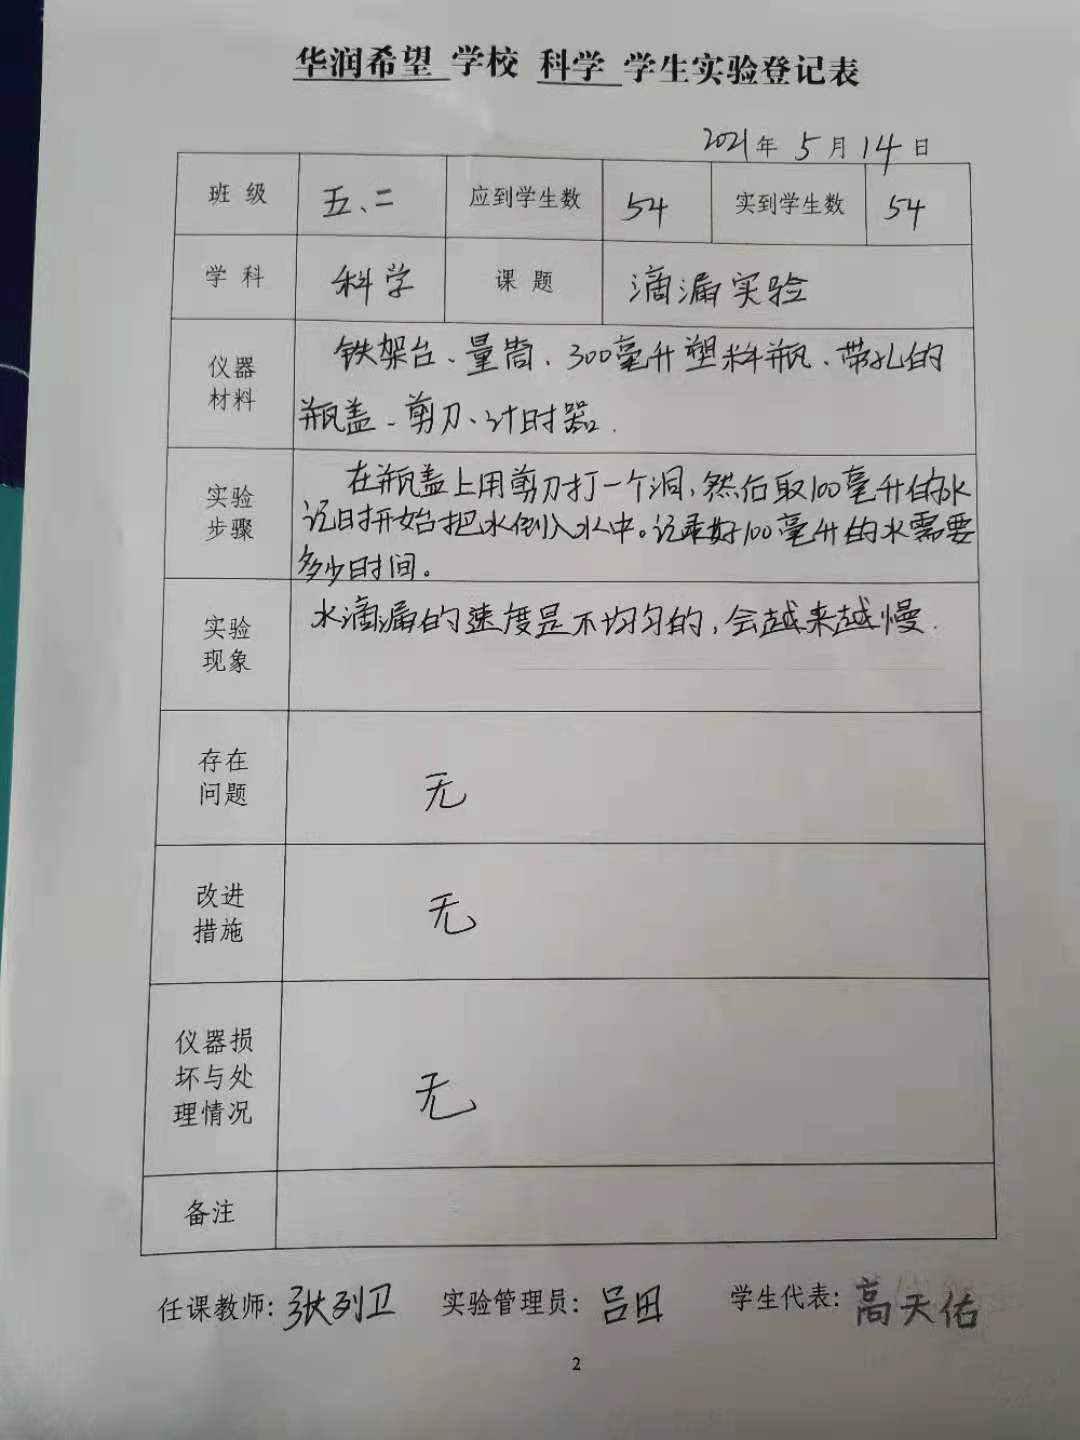 华润希望 学校 科学 学生实验登记表
2021年 5月14日
班 级 五、二 应到学生数 54 实到学生数 54
学 科 科学 课 题 滴漏实验
仪器
材料
铁架台、量筒、300毫升塑料瓶、带孔的
瓶盖、剪刀、计时器.
实验
步骤
在瓶盖上用剪刀打一个洞,然后取100毫升的水
记时开始把水倒入水中。记录好100毫升的水需要
多少时间。
实验
现象
水滴漏的速度是不均匀的,会越来越慢.
存在
问题
无
改进
措施
无
仪器损
坏与处
理情况
无
备注
任课教师: 张列卫 实验管理员: 吕田 学生代表: 高天佑
2